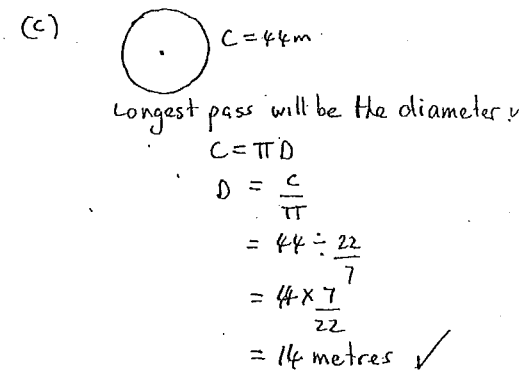 (c)
C = 44m
Longest pass will be the diameter ✓
C = πD
D = C/π
= 44 ÷ 22/7
= 44 × 7/22
= 14 metres ✓